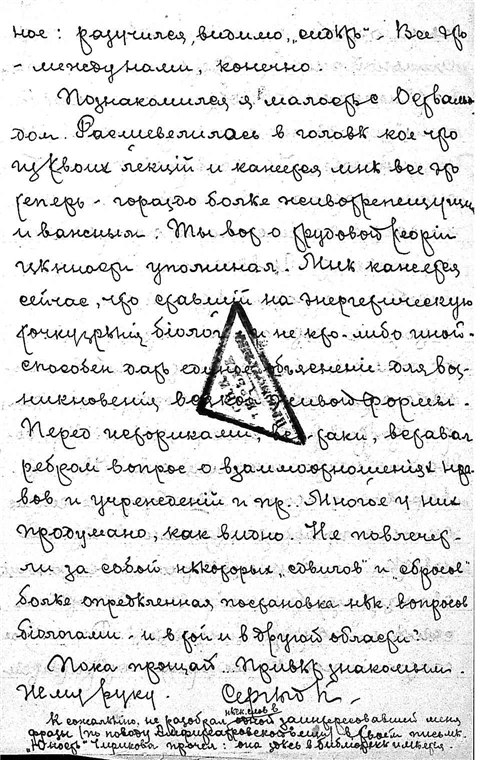 ное: разучился, видимо, „сидѣть“. Все это
- между нами, конечно.
Познакомился я малость с Остваль-
дом. Расшевелилась в головѣ кое что
из твоих лекцій и кажется мнѣ все это
теперь - гораздо болѣе животрепещущим
и важным. Ты вот о трудовой теоріи
цѣнности упоминал. Мнѣ кажется
сейчас, что ставшій на энергетическую
точку зрѣнія біолог, а не кто-либо иной -
способен дать единое объясненіе для воз-
никновенія всякой живой формы.
Перед историками, все таки, вставал
ребром вопрос о взаимоотношеніях нра-
вов и учрежденій и пр. Многое у них
продумано, как видно. Не повлечет-
ли за собой нѣкоторых „сдвигов“ и „сбросов“
болѣе опредѣленная постановка нѣк. вопросов
біологами - и в той и в другой области?
Пока прощай. Привѣт знакомым.
Жму руку. Сергей К.
нѣск. слов в
К сожалѣнію, не разобрал заинтересовавшей меня
фразы (по поводу вещи) в твоем письмѣ.
„Юность“ Чирикова прочел: она здѣсь в библіотекѣ имѣется.